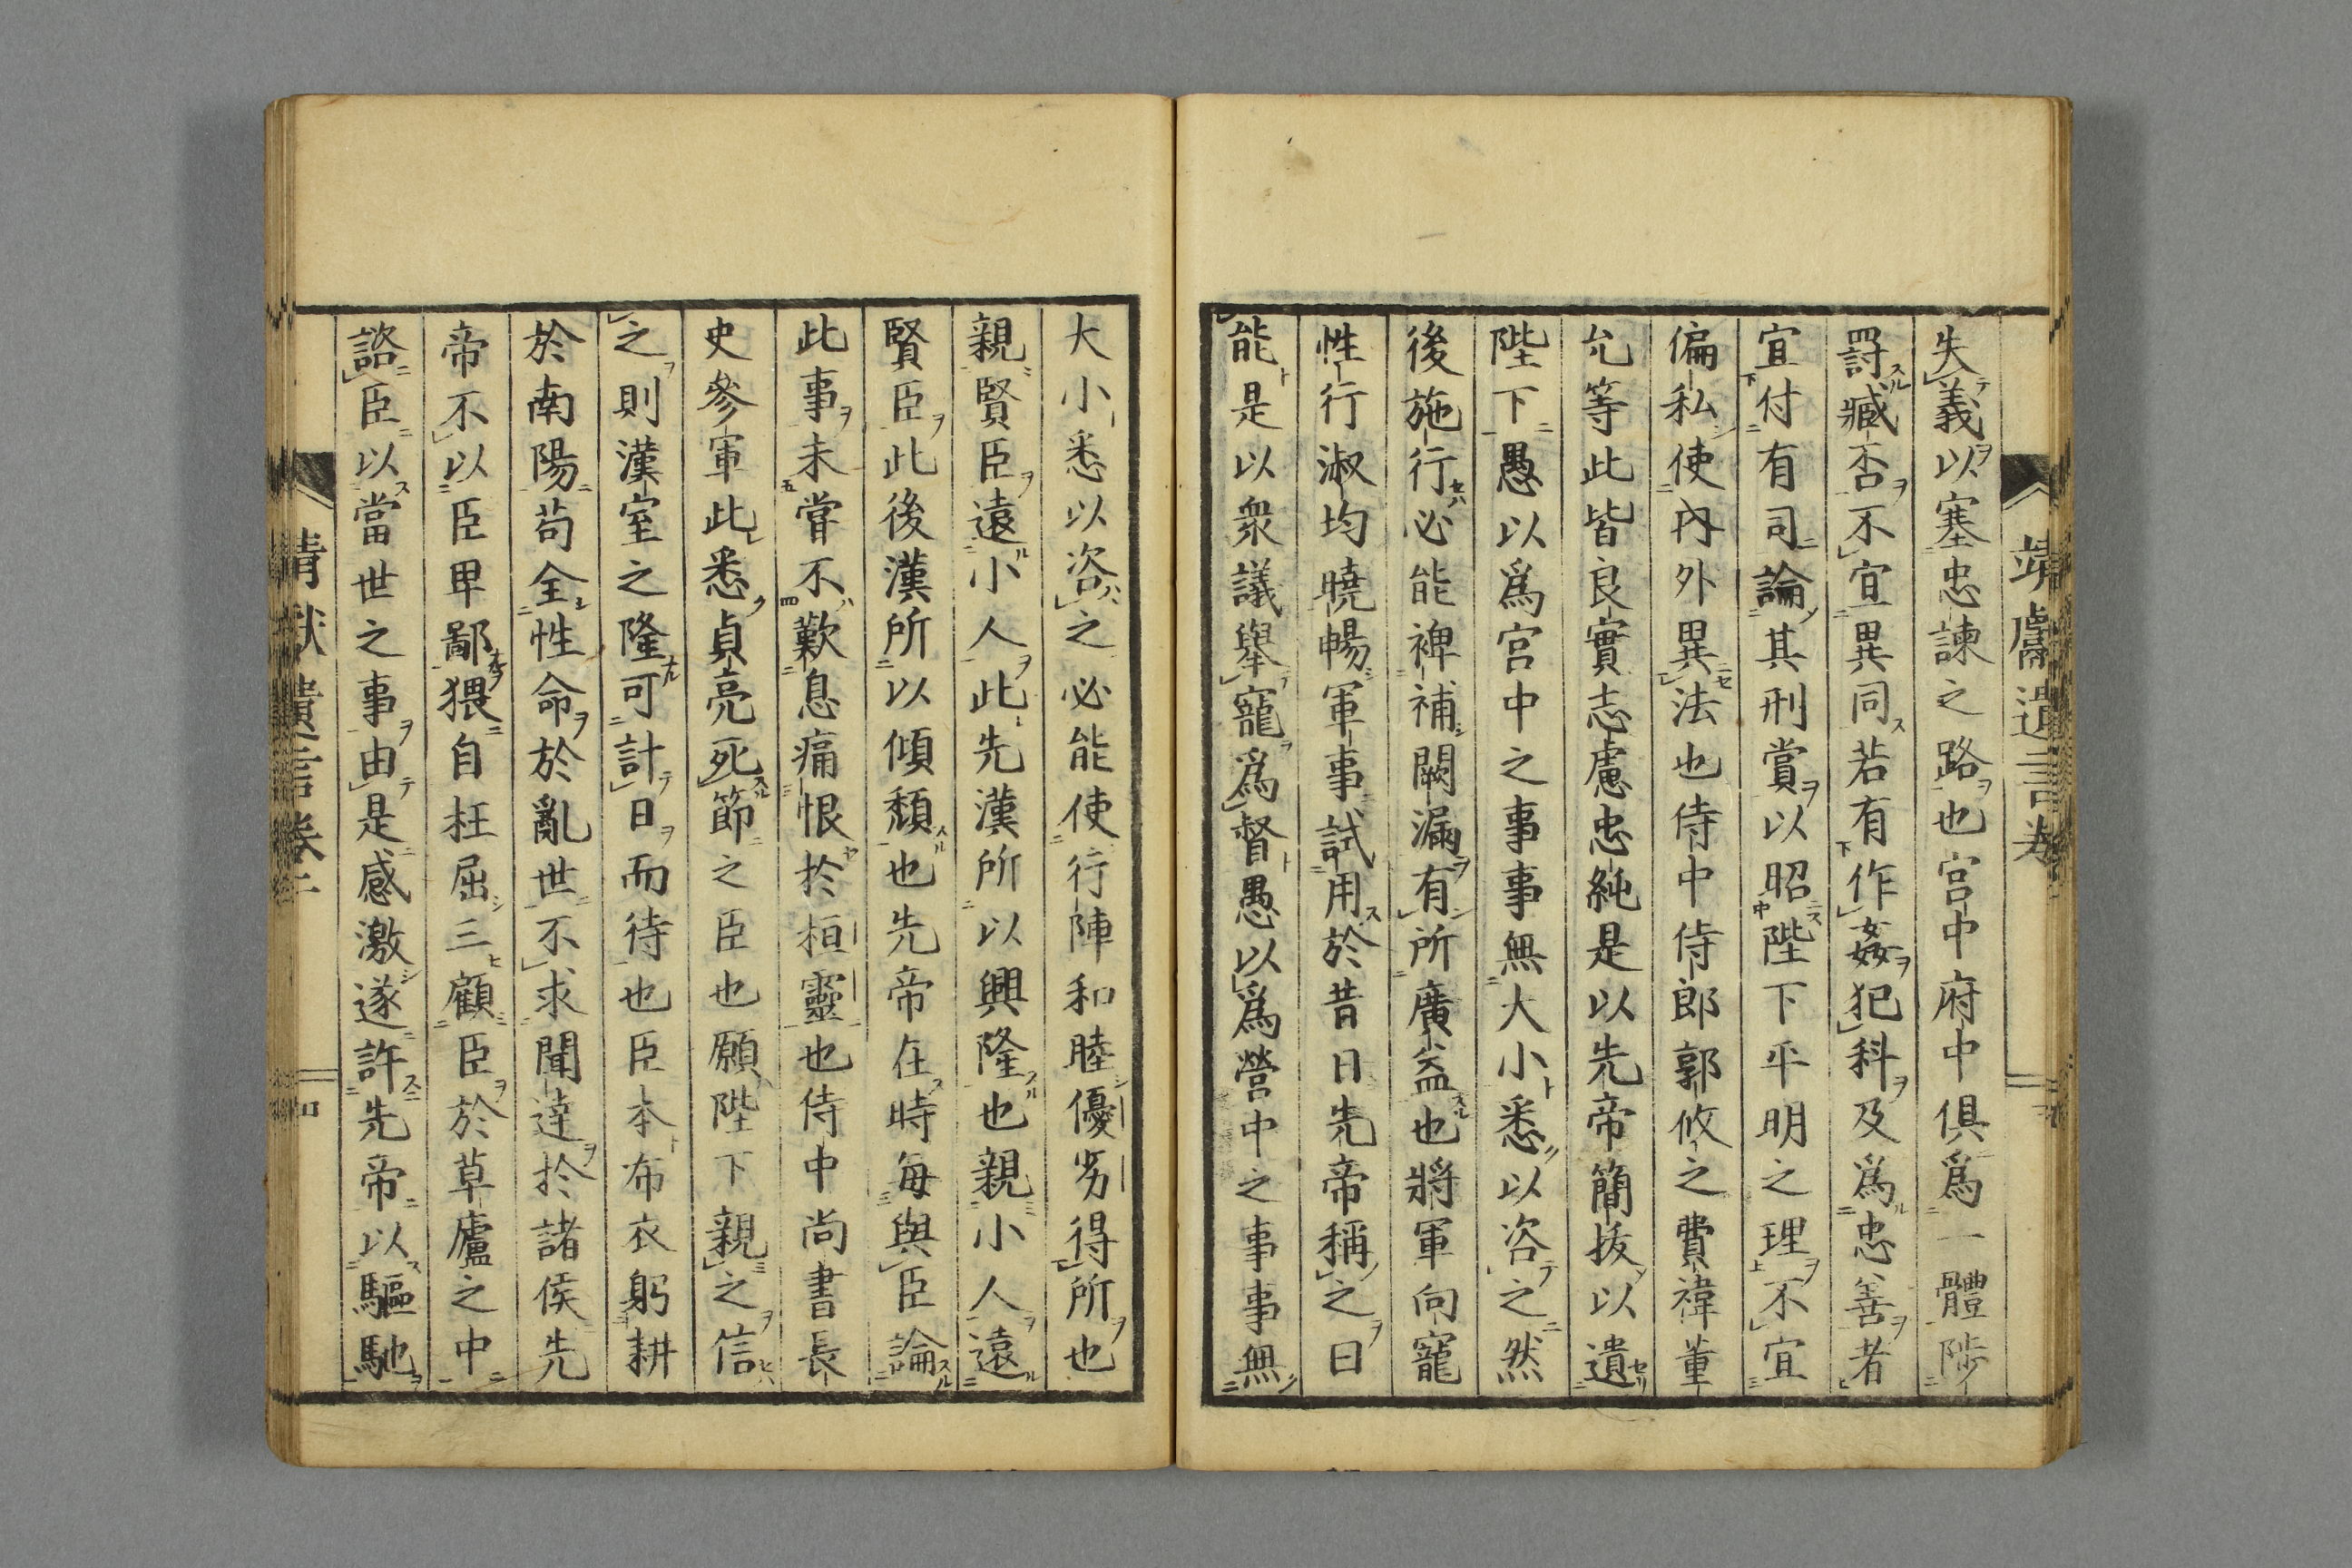 靖獻遺言卷
失義以塞忠諫之路也宮中府中俱爲一體陟
罸臧否不宜異同若有作姦犯科及爲忠善者
宜付有司論其刑賞以昭陛下平明之理不宜
偏私使內外異法也侍中侍郎郭攸之費禕董
允等此皆良實志慮忠純是以先帝簡拔以遺
陛下愚以爲宮中之事事無大小悉以咨之然
後施行必能裨補闕漏有所廣益也將軍向寵
性行淑均曉暢軍事試用於昔日先帝稱之曰
能是以衆議舉寵爲督愚以爲營中之事事無
大小悉以咨之必能使行陣和睦優劣得所也
親賢臣遠小人此先漢所以興隆也親小人遠
賢臣此後漢所以傾頹也先帝在時每與臣論
此事未嘗不歎息痛恨於桓靈也侍中尚書長
史參軍此悉貞亮死節之臣也願陛下親之信
之則漢室之隆可計日而待也臣本布衣躬耕
於南陽苟全性命於亂世不求聞達於諸侯先
帝不以臣卑鄙猥自枉屈三顧臣於草廬之中
諮臣以當世之事由是感激遂許先帝以驅馳
靖獻遺言卷二